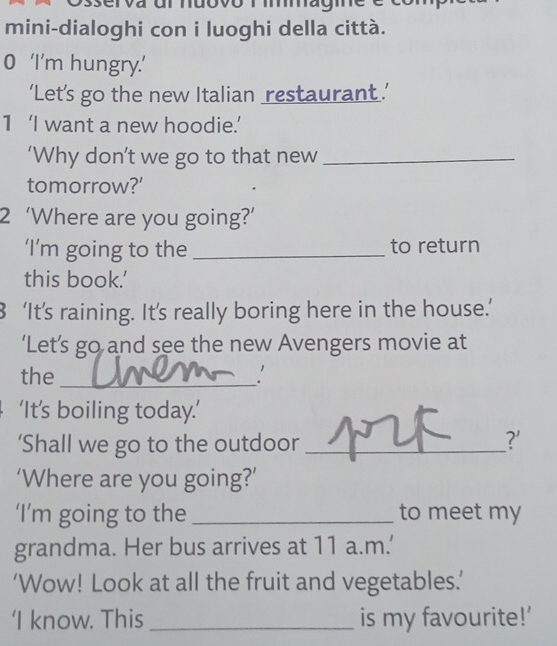 mini-dialoghi con i luoghi della città.
0 ‘I’m hungry.’
‘Let’s go the new Italian restaurant.’
1 ‘I want a new hoodie.’
‘Why don’t we go to that new ____________
tomorrow?’
2 ‘Where are you going?’
‘I’m going to the ____________ to return
this book.’
3 ‘It’s raining. It’s really boring here in the house.’
‘Let’s go and see the new Avengers movie at
the cinema.’
‘It’s boiling today.’
‘Shall we go to the outdoor ____________?’
‘Where are you going?’
‘I’m going to the ____________ to meet my
grandma. Her bus arrives at 11 a.m.’
‘Wow! Look at all the fruit and vegetables.’
‘I know. This ____________ is my favourite!’